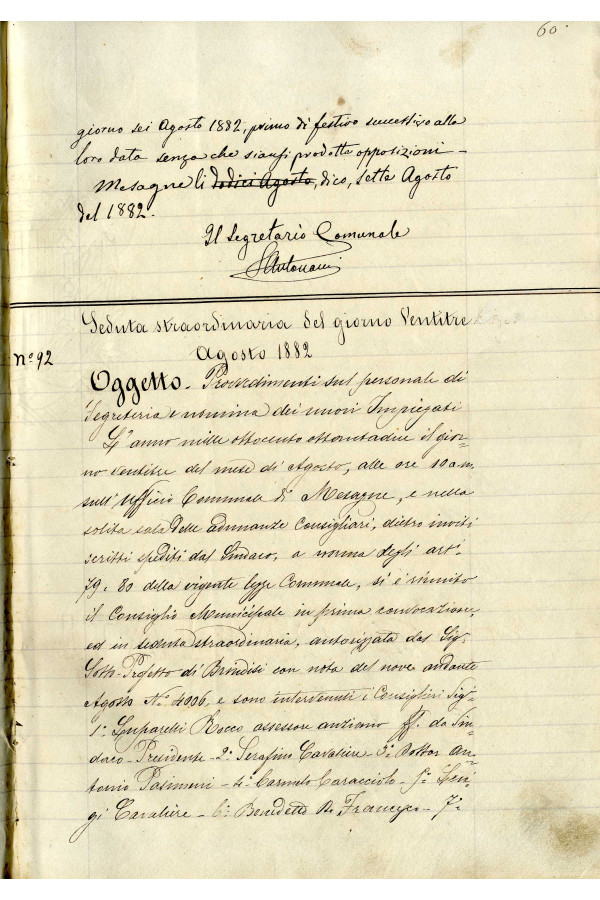 60.
giorno sei Agosto 1882, primo dì festivo successivo alla
loro data senza che siansi prodotte opposizioni -
Mesagne li dodici Agosto, dico, sette Agosto
del 1882.
Il Segretario Comunale
Seduta straordinaria del giorno Ventitre
Agosto 1882
N.º 92
Oggetto - Provvedimenti sul personale di
Segreteria e nomina dei nuovi Impiegati
L'anno mille ottocento ottantadue il gior=
no ventitre del mese di Agosto, alle ore 10 a.m.
sull'Ufficio Comunale di Mesagne, e nella
solita sala delle adunanze Consigliari, dietro inviti
scritti spediti dal Sindaco, a norma degli art.
79. 80 della vigente legge Comunale, si è riunito
il Consiglio Municipale in prima convocazione,
ed in seduta straordinaria, autorizzata dal Sig.
Sotto-Prefetto di Brindisi con nota del nove andante
Agosto N.º 4006, e sono intervenuti i Consiglieri Sig.ri
1º Luparelli Rocco assessore anziano ff. da Sin=
daco-Presidente - 2º Serafino Cavaliere 3º Dottor An=
tonio Pasimeni - 4º Carmelo Caracciolo - 5º Lui=
gi Cavaliere - 6º Benedetto De Francesco - 7º